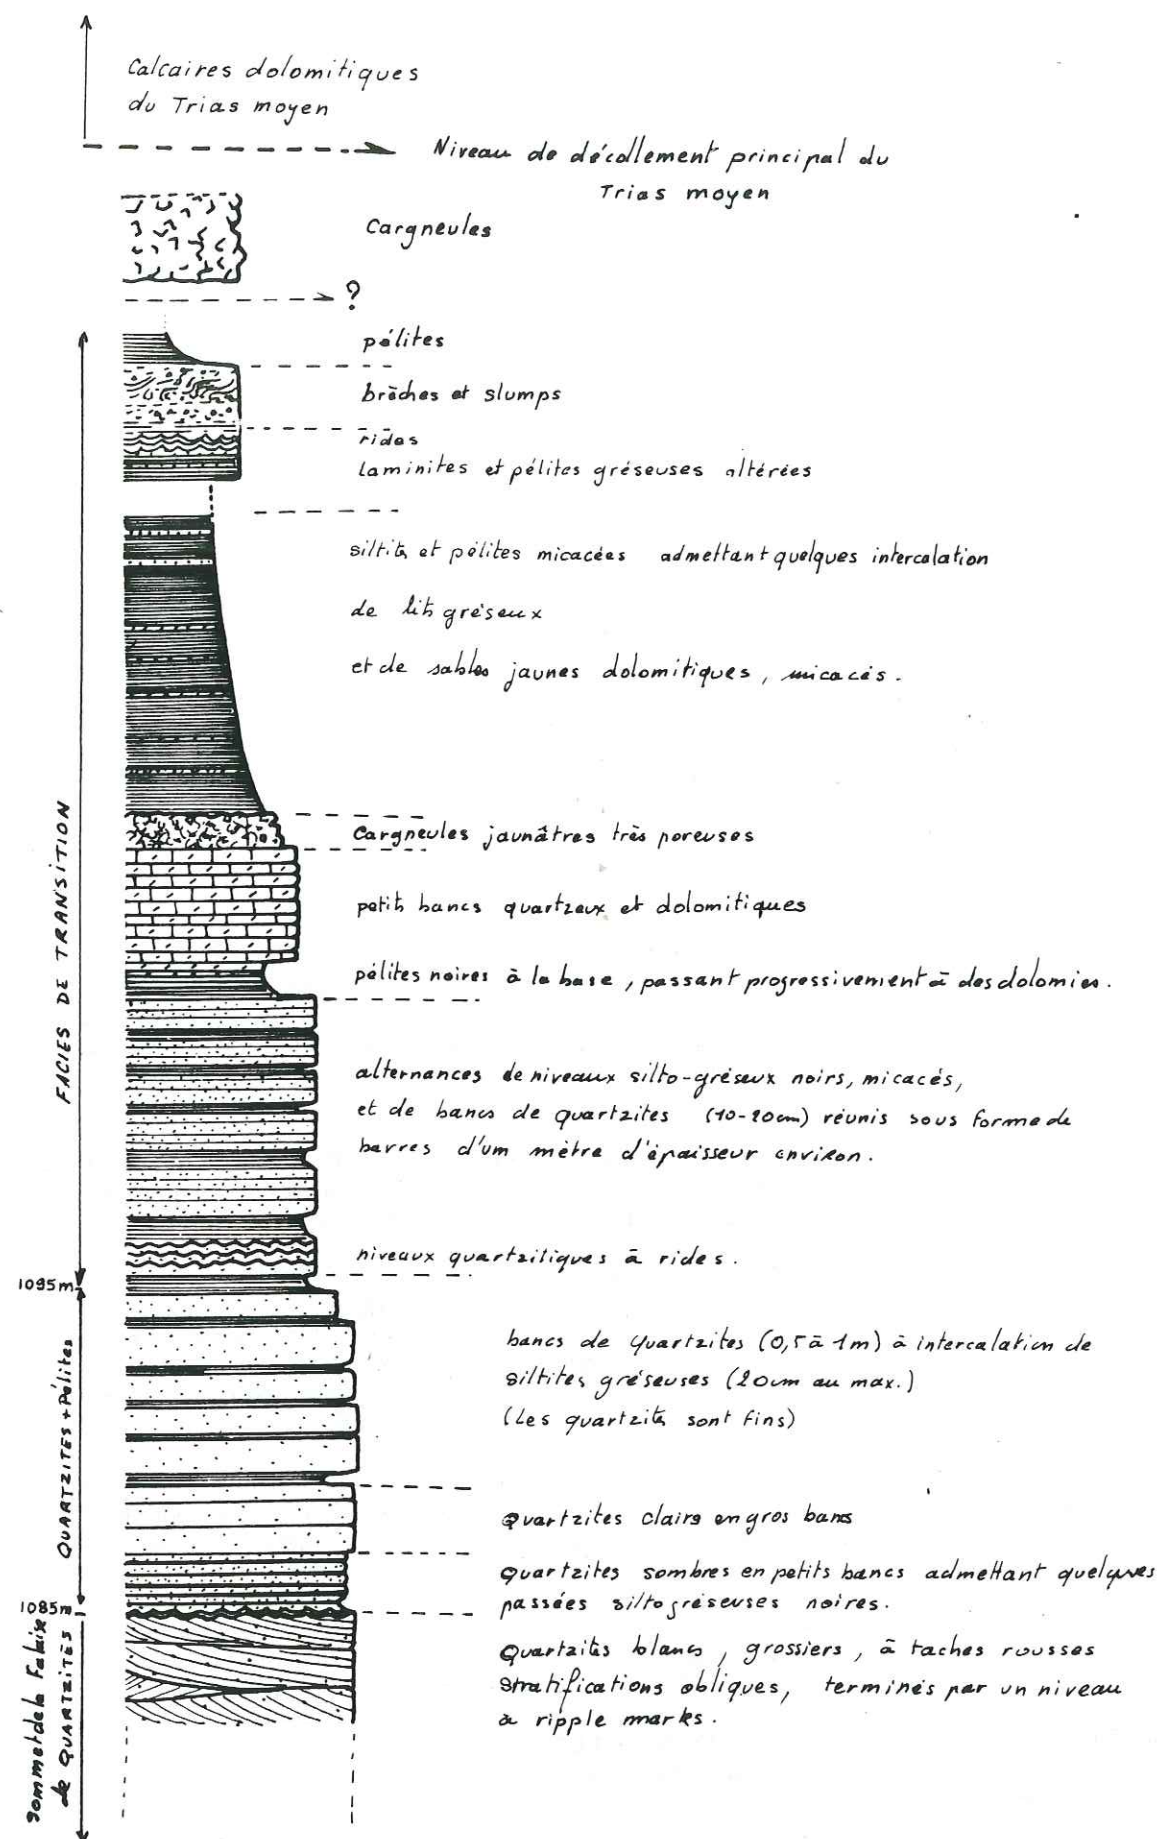 Calcaires dolomitiques
du Trias moyen
Niveau de décollement principal du
Trias moyen
Cargneules
?
pélites
brèches et slumps
rides
laminites et pélites gréseuses altérées
siltits et pélites micacées admettant quelques intercalation
de lits gréseux
et de sables jaunes dolomitiques, micacés.
Cargneules jaunâtres très poreuses
petits bancs quartzeux et dolomitiques
pélites noires à la base, passant progressivement à des dolomies.
alternances de niveaux silto-gréseux noirs, micacés,
et de bancs de quartzites (10-20cm) réunis sous forme de
barres d'um mètre d'épaisseur environ.
niveaux quartzitiques à rides.
FACIES DE TRANSITION
1095m
bancs de quartzites (0,5 à 1m) à intercalation de
siltites gréseuses (20cm au max.)
(Les quartzits sont fins)
Quartzites clairs en gros bancs
Quartzites sombres en petits bancs admettant quelques
passées siltogréseuses noires.
QUARTZITES + Pélites
1085m
Quartzits blancs, grossiers, à taches rousses
stratifications obliques, terminés par un niveau
à ripple marks.
Sommet de la Falaise
de QUARTZITES